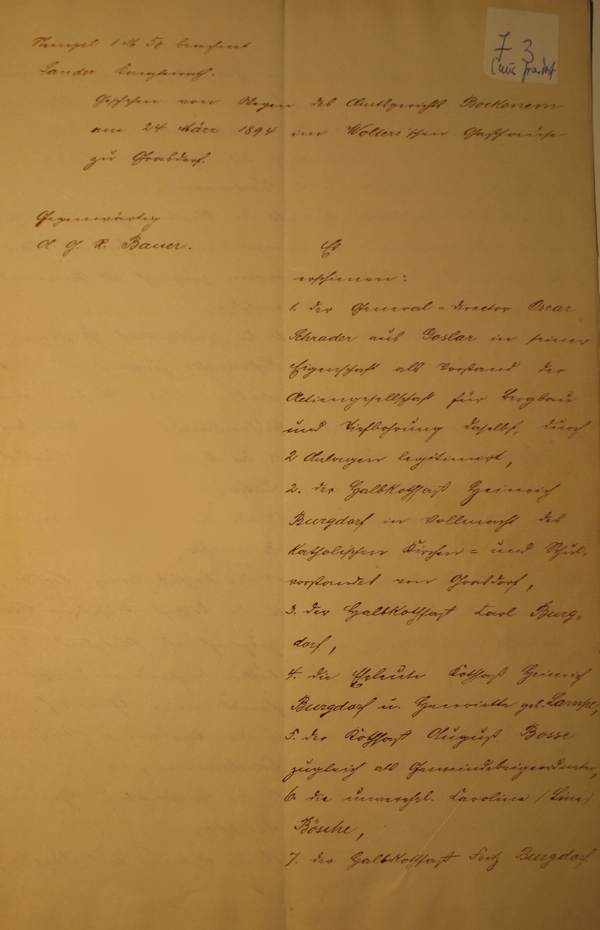 7 3
Stempel 1 M 50 berechnet
Sander
Geschehen von Wegen des Amtsgerichts Bockenem
am 24. März 1894 im Wolters'schen Gasthause
zu Grasdorf.
Gegenwärtig
A. G. R. Bauer.
Es
erschienen:
1. der General-Director Oscar
Schrader aus Goslar in seiner
Eigenschaft als Vorstand der
Actiengesellschaft für Bergbau
und Tiefbohrung daselbst, durch
2 Anlagen legitimiert,
2. der Halbkothsaß Heinrich
Burgdorf in Vollmacht des
katholischen Kirchen- und Schul-
vorstandes von Grasdorf,
3. der Halbkothsaß Karl Burg-
dorf,
4. die Eheleute Kothsaß Heinrich
Burgdorf u. Henriette geb. Lampe,
5. der Kothsaß August Bosse
zugleich als Gemeindebeigeordneter,
6. die unverehel. Caroline (Line)
Bösche,
7. der Halbkothsaß Fritz Burgdorf